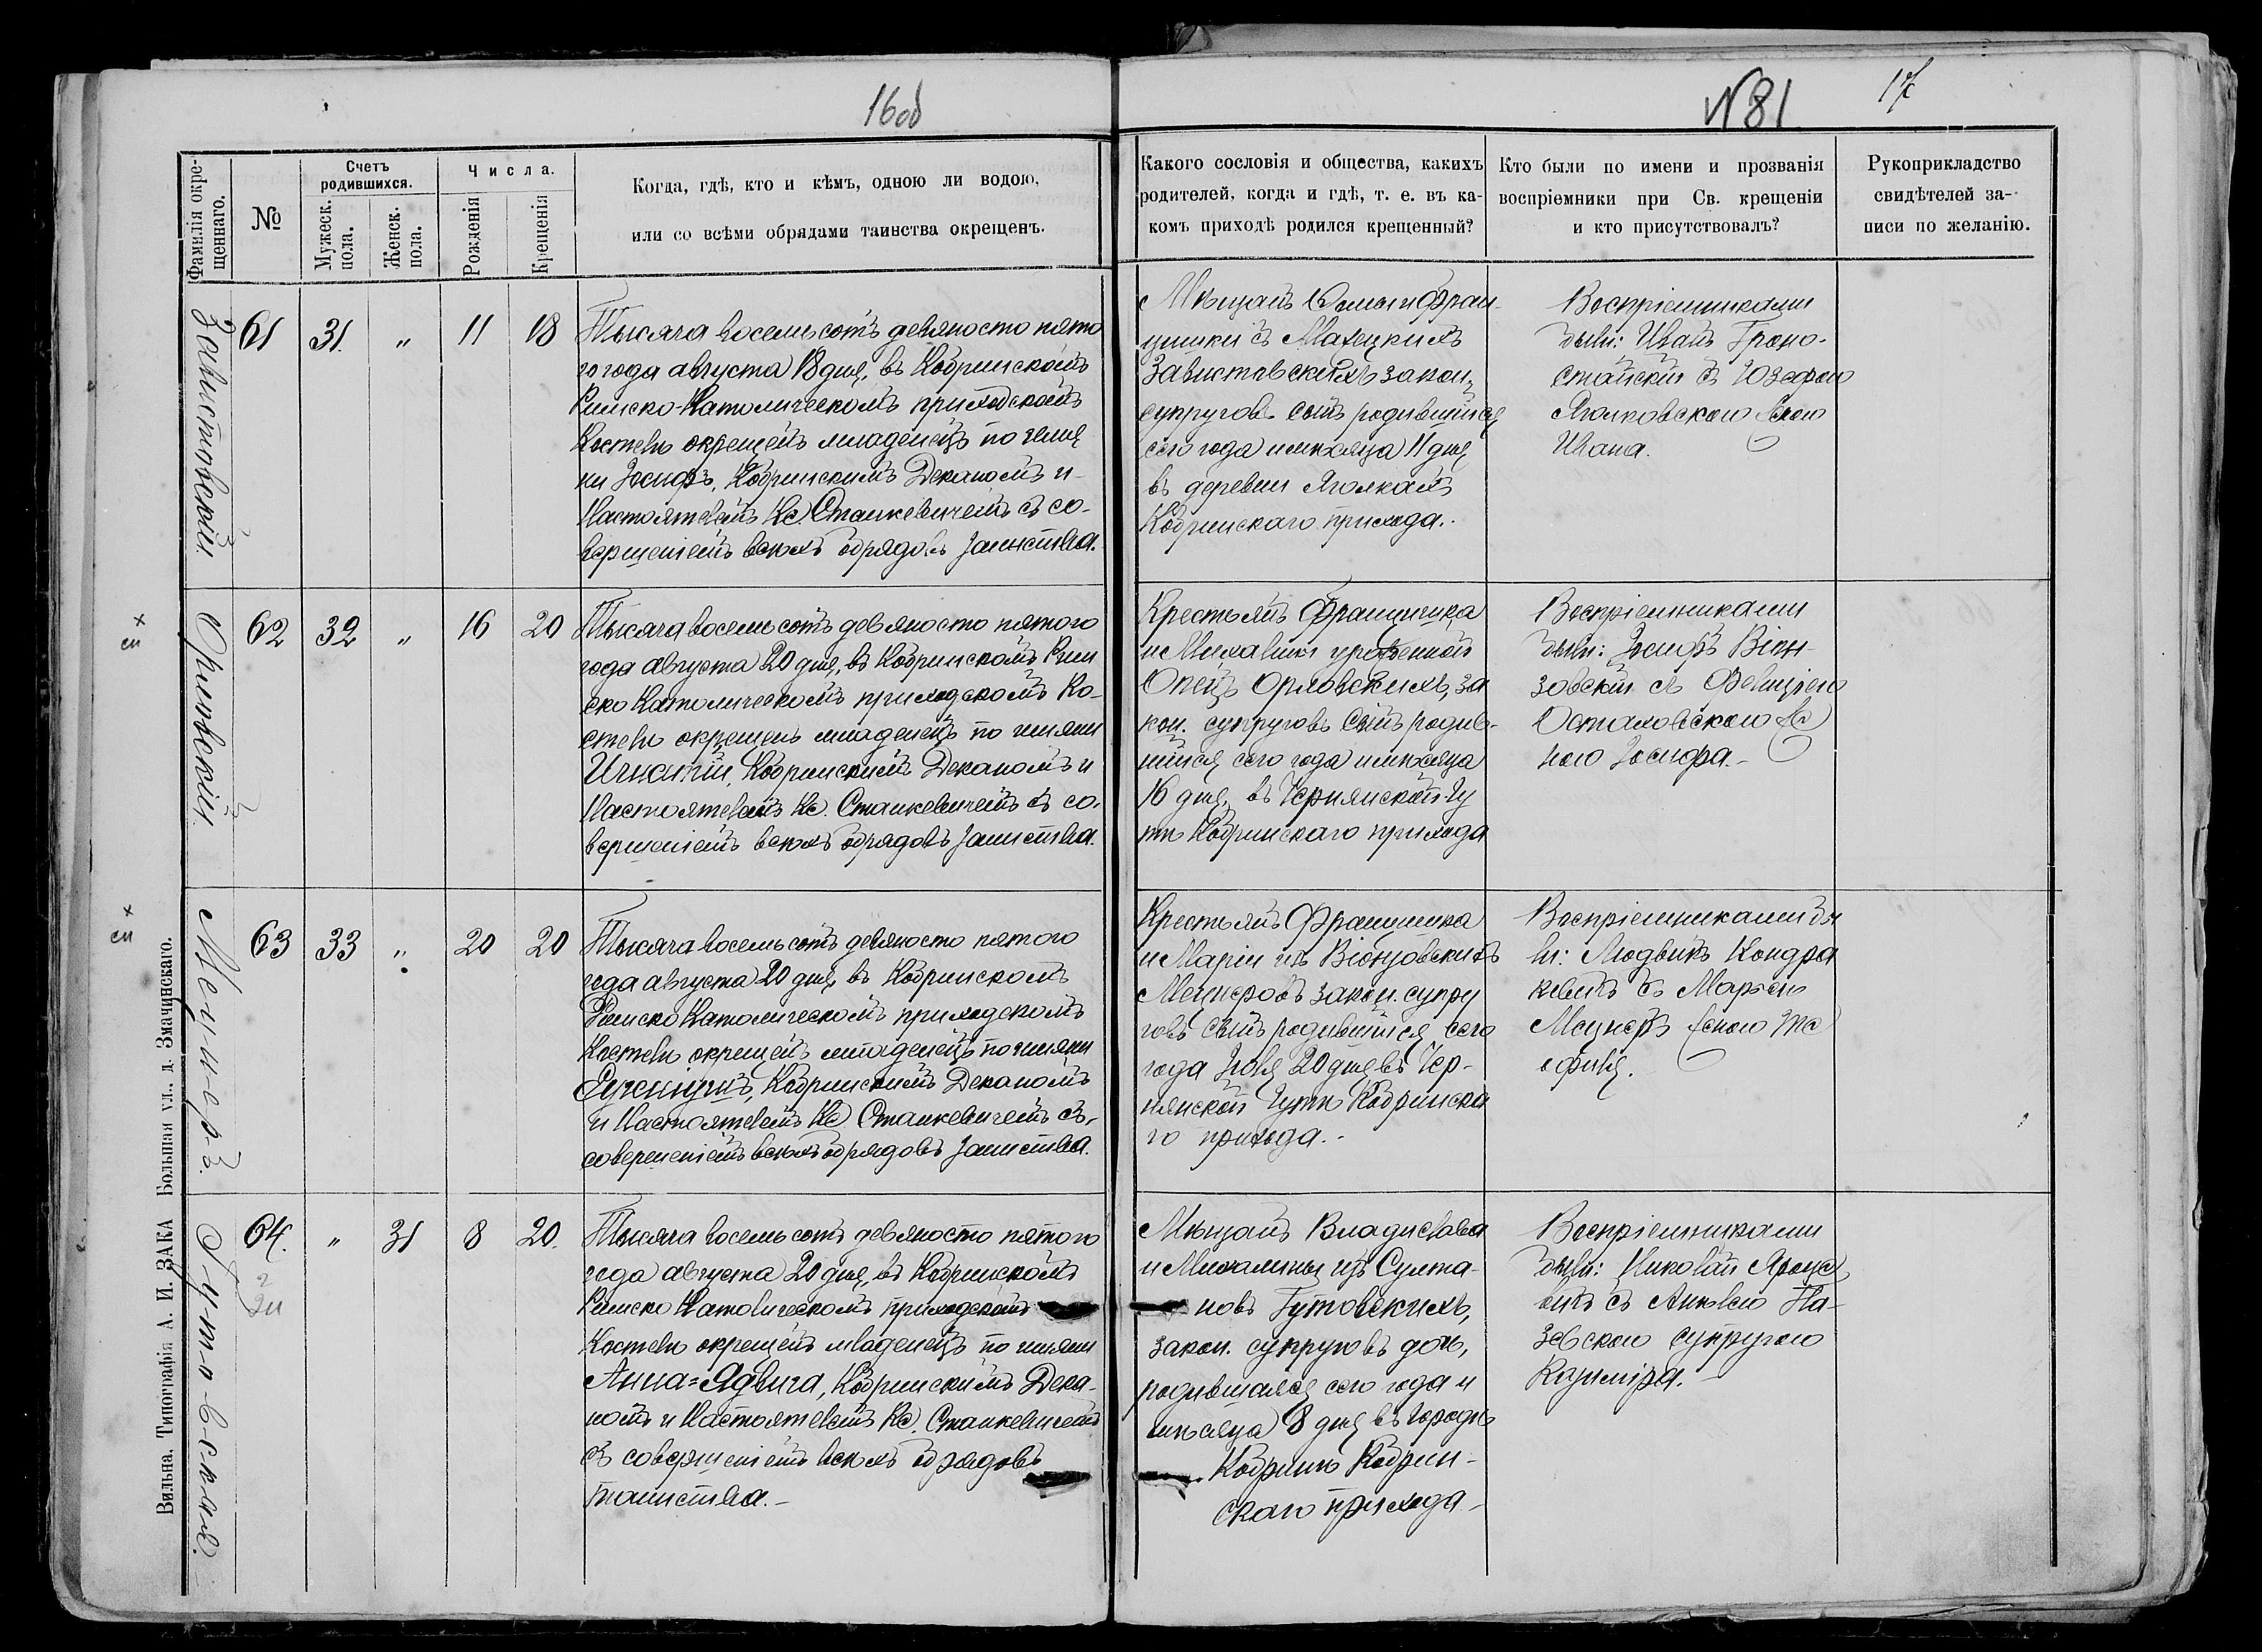 16об
№81
17
Фамилія окре-
щеннаго.
№
Счетъ
родившихся.
Мужеск.
пола.
Женск.
пола.
Числа.
Рожденія
Крещенія
Когда, гдѣ, кто и кѣмъ, одною ли водою,
или со всѣми обрядами таинства окрещенъ.
Какого сословія и общества, какихъ
родителей, когда и гдѣ, т. е. въ ка-
комъ приходѣ родился крещенный?
Кто были по имени и прозванія
воспріемники при Св. крещеніи
и кто присутствовалъ?
Рукоприкладство
свидѣтелей за-
писи по желанію.
Завистовскій.
61 31. „ 11 18
Тысяча восемьсотъ девяносто пята
го года августа 18 дня, въ Кобринскомъ
Римско-Католическомъ приходскомъ
Костелѣ окрещенъ младенецъ по имя
ни Іосифъ, Кобринскимъ Деканомъ и
Настоятелемъ Кс. Станкевичемъ съ со-
вершеніемъ всѣхъ обрядовъ таинства.
Мѣщанъ Ѳомы и Фран-
цишки съ Махецкихъ
Завистовскихъ закон.
супруговъ сынъ родившійся
сего года и мѣсяца 11 дня
въ деревни Яголкахъ
Кобринскаго прихода.
Воспріемниками
были: Иванъ Гроно-
стайскій съ Юзефою
Ягалковскою женою
Ивана.
Орловскій.
62 32 „ 16 20
Тысяча восемьсотъ девяносто пятого
года августа 20 дня, въ Кобринскомъ Рим
ско Католическомъ приходскомъ Ко-
стелѣ окрещенъ младенецъ по имяни
Игнатій, Кобринскимъ Деканомъ и
Настоятелемъ Кс. Станкевичемъ съ со-
вершеніемъ всѣхъ обрядовъ таинства.
Крестьянъ Францишка
и Михалины урожденной
Опецъ Орловскихъ, за
кон. супруговъ сынъ родив-
шійся сего года и мѣсяца
16 дня, въ Чернянской Гу
тѣ Кобринскаго прихода
Воспріемниками
были: Іосифъ Віон-
зовскій съ Фелиціею
Осталовскою же
ною Іосифа.
Мецнеръ.
63 33 „ 20 20
Тысяча восемьсотъ девяносто пятого
года августа 20 дня, въ Кобринскомъ
Римско Католическомъ приходскомъ
Костелѣ окрещенъ младенецъ по имяни
Евгеніушъ, Кобринскимъ Деканомъ
и Настоятелемъ Кс. Станкевичемъ съ
совершеніемъ всѣхъ обрядовъ таинства.
Крестьянъ Францишка
и Маріи изъ Віонзовскихъ
Мецнеровъ закон. супру
говъ сынъ родившійся сего
года Іюля 20 дня въ Чер-
нянской Гутѣ Кобринска
го прихода.
Воспріемниками бы
ли: Людвикъ Кондра
кевичъ съ Маріею
Мецнеръ женою
Гутовская.
64. „ 31 8 20.
Тысяча восемьсотъ девяносто пятого
года августа 20 дня, въ Кобринскомъ
Римско Католическомъ приходскомъ
Костелѣ окрещенъ младенецъ по имяни
Анна=Ядвига, Кобринскимъ Дека-
номъ и Настоятелемъ Кс. Станкевичемъ
съ совершеніемъ всѣхъ обрядовъ
таинства.
Мѣщанъ Владислава
и Михалины изъ Султа-
новъ Гутовскихъ,
закон. супруговъ дочь,
родившаяся сего года и
мѣсяца 8 дня въ городѣ
Кобринѣ Кобрин-
скаго прихода
Воспріемниками
были: Николай Яроце
вичъ съ Анною На-
зевскою супругою
Казиміра.
Вильна. Типографія А. И. ЗАКА Большая ул. д. Змачинскаго.